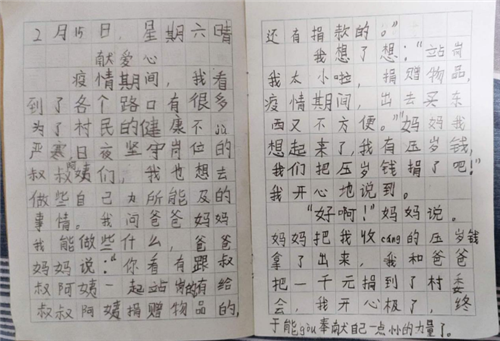 2月15日，星期六晴
献爱心
疫情期间，我看
到了各个路口有很多
为了村民的健康不以
严寒日夜坚守岗位的
叔叔阿姨们，我也想去
做些自己力所能及的
事情。我问爸爸妈妈
我能做些什么，爸爸
妈妈说：“你看有跟叔
叔阿姨一起站岗的有给
叔叔阿姨捐赠物品的，
还有捐款的。”
我想了想：“站岗
我太小啦，捐赠物品，
疫情期间，出去买东
西又不方便。”妈妈我
想起来了，我有压岁钱，
我们把压岁钱捐了吧！”
我开心地说到。
“好啊！”妈妈说。
妈妈把我收cáng的压岁钱
拿了出来，我和爸爸
把一千元捐到了村委
会，我开心极了，终
于能gòu奉献自己一点小的力量了。